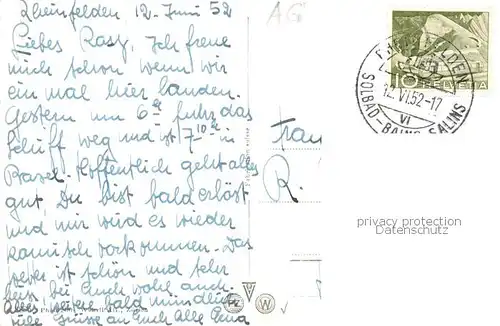 Rheinfelden 12. Juni 52
AG
Liebes Rasy, Ich freue
mich schon wenn wir
ein mal hier landen.
Gestern um 6 fuhr das
Schiff weg und ist 7 10 in
Basel. Hoffentlich geht alles
gut, Du bist bald erlöst
und mir wird es wieder
komisch vorkommen. Das
Wetter ist schön und sehr
heiss bei Euch wohl auch.
Alles weitere bald mündlich
viele Grüsse an Euch Alle Erna
Frau
R.
RHEINFELDEN
12.VI.52-17
VI
SOLBAD-BAINS SALINS
10 HELVETIA
privacy protection
Datenschutz
PZ W